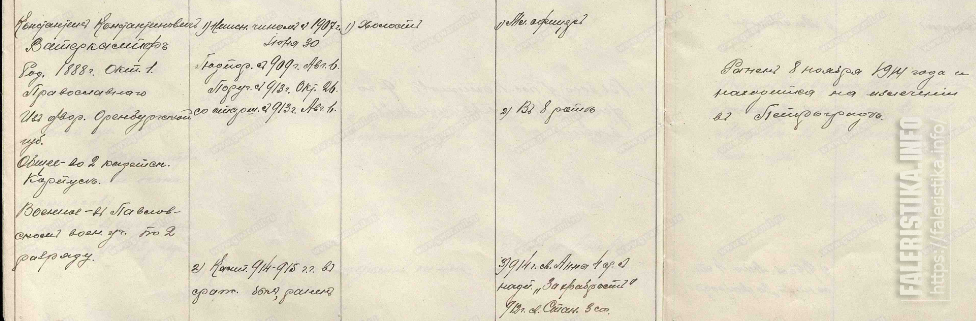 Константин Константинович
Ватеркампфъ
Род. 1888 г. Окт. 1.
Православнаго
Изъ двор. Оренбургской
губ.
Общее - во 2 кадетск.
Корпусѣ.
Военное - въ Павлов-
скомъ воен. уч. по 2
разряду.
1) Нижн. чиномъ съ 1907 г.
30
Подпор. съ 909 г. Авг. 6.
Поруч. съ 913 г. Окт. 26.
со старш. съ 913 г. Авг. 6.
2) Камп. 914-915 г.г. въ
сраж. былъ, раненъ
1) Холостъ
1) Мл. офицеръ
2) Въ 8 ротѣ
3) 914 г. св. Анна 4 ст. съ
надп. "За храбрость"
913 г. св. Стан. 3 ст.
Раненъ 8 ноября 1914 года и
находится на излеченіи
въ Петроградѣ.
FALERISTIKA.INFO
https://faleristika.info